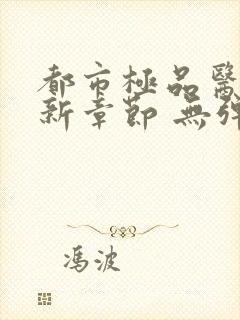 都市極品醫
新章節 無彈
馮波